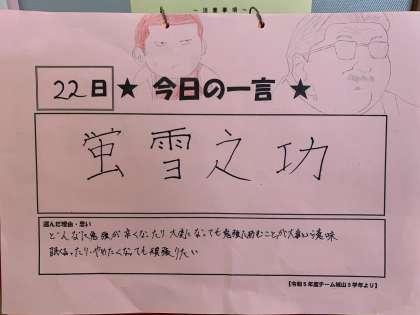 ～注意事項～
22日 ★ 今日の一言 ★
蛍雪之功
選んだ理由・思い
どんなに勉強が辛くなったり大変になっても勉強に励むことが大事という意味
眠くなったり、やめたくなっても頑張りたい
【令和5年度チーム城山3学年より】